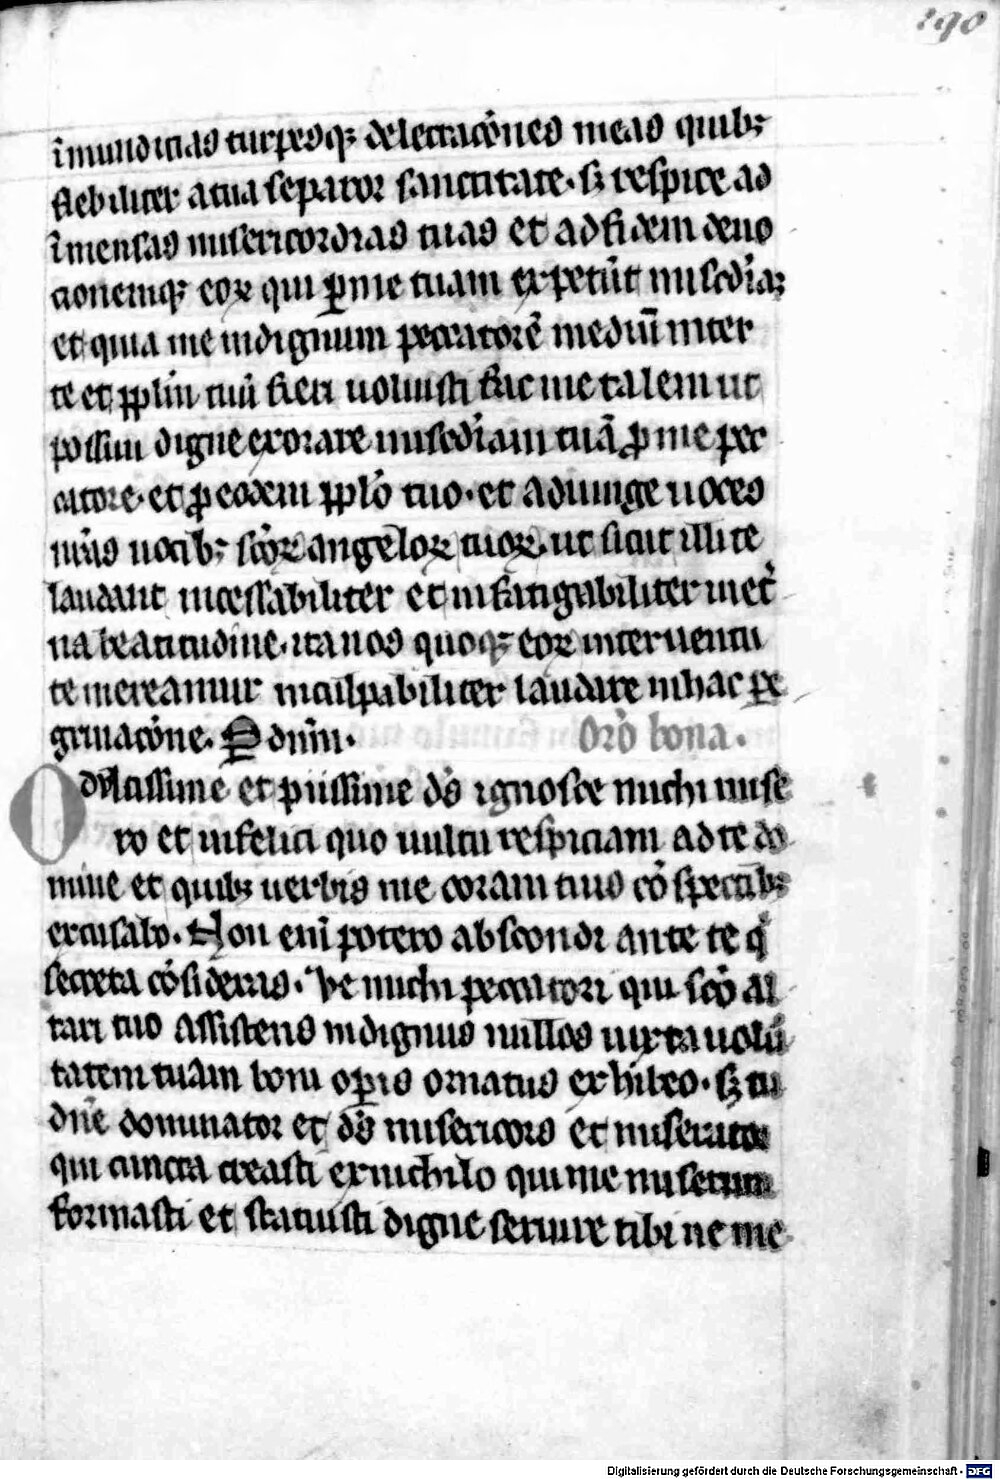 190
īmundicias turpesqꝫ delectacōnes meas quibꝫ
flebiliter a tua separor sanctitate. sꝫ respice ad
īmensas misericordias tuas et ad fidem deuo
cionemqꝫ eoꝝ qui ꝑ me tuam expetūt misc̄dia;
et quia me indignum peccatorē mediū inter
te et ppl̄m tuū fieri uoluisti fac me talem ut
possim digne exorare misc̄diam tuā ꝓ me pec
catore. et ꝓ eodem ppl̄o tuo. et adiunge uoces
nr̄as uocibꝫ sc̄oꝝ angeloꝝ tuoꝝ. ut sicut illi te
laudant incessabiliter et infatigabiliter in et̄
na beatitudine. ita nos quoqꝫ eoꝝ interuentu
te mereamur inculpabiliter laudare in hac ꝑe
grinacōne. P dn̄m. Orō bona.
O dulcissime et piissime ds̄ ignosce michi mise
ro et infelici quo uultu respiciam ad te do
mine et quibꝫ uerbis me coram tuis cōspectibꝫ
excusabo. Non eni potero abscondi ante te q̄
secreta cōsideras. Ve michi peccatori qui sc̄o al
tari tuo assistens indignus nullos iuxta uolū
tatem tuam boni oꝑis ornatus exhibeo. sꝫ tu
dn̄e dominator et ds̄ misericors et miserator
qui cuncta creasti ex nichilo qui me miserum
formasti et statuisti digne seruire tibi ne me
Digitalisierung gefördert durch die Deutsche Forschungsgemeinschaft - DFG